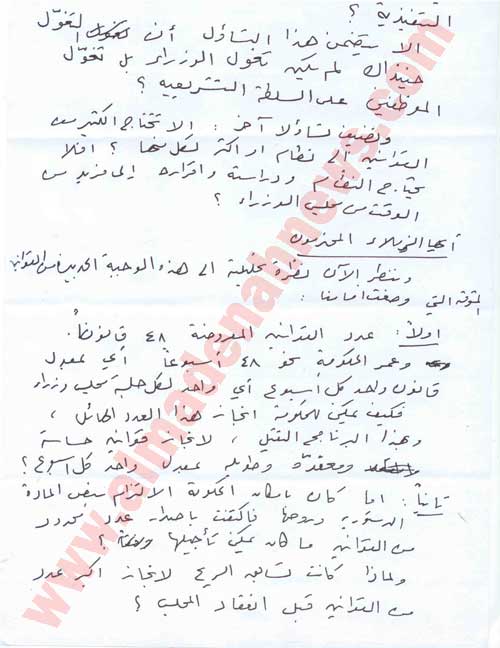 التنفيذية ؟
ألا يتضمن هذا التساؤل أن التغوّل
حينذاك لم يكن تغول الوزراء بل تغوّل
الموظفين على السلطة التشريعية ؟
ونضيف تساؤلاً آخر : ألا تحتاج الكثير من
القوانين الى نظام او أكثر لكل منها ؟ أفلا
يحتاج النظام ودراسته واقراره الى مزيد من
الوقت من مجلس الوزراء ؟
أيها الزملاء المحترمون
وننظر الآن نظرة تحليلية الى هذه الوجبة الجديدة من القوانين
المؤقتة التي وضعت أمامنا :
اولاً : عدد القوانين المعروضة ٤٨ قانوناً
وعمر الحكومة نحو ٤٨ أسبوعاً أي بمعدل
قانون واحد كل أسبوع أي واحد لكل جلسة مجلس وزراء
فكيف يمكن للحكومة انجاز هذا العدد الهائل ،
وبهذا البرنامج الثقيل ، لانجاز قوانين حساسة
ومعقدة وطويلة بمعدل واحد كل أسبوع ؟
ثانياً : أما كان بامكان الحكومة الالتزام بنص المادة
الدستورية وروحها فاكتفت باصدار عدد محدود
من القوانين ما كان يمكن تأجيلها ؟
ولماذا كانت تسابق الريح لانجاز اكبر عدد
من القوانين قبل انعقاد المجلس ؟
www.almadenahnews.com